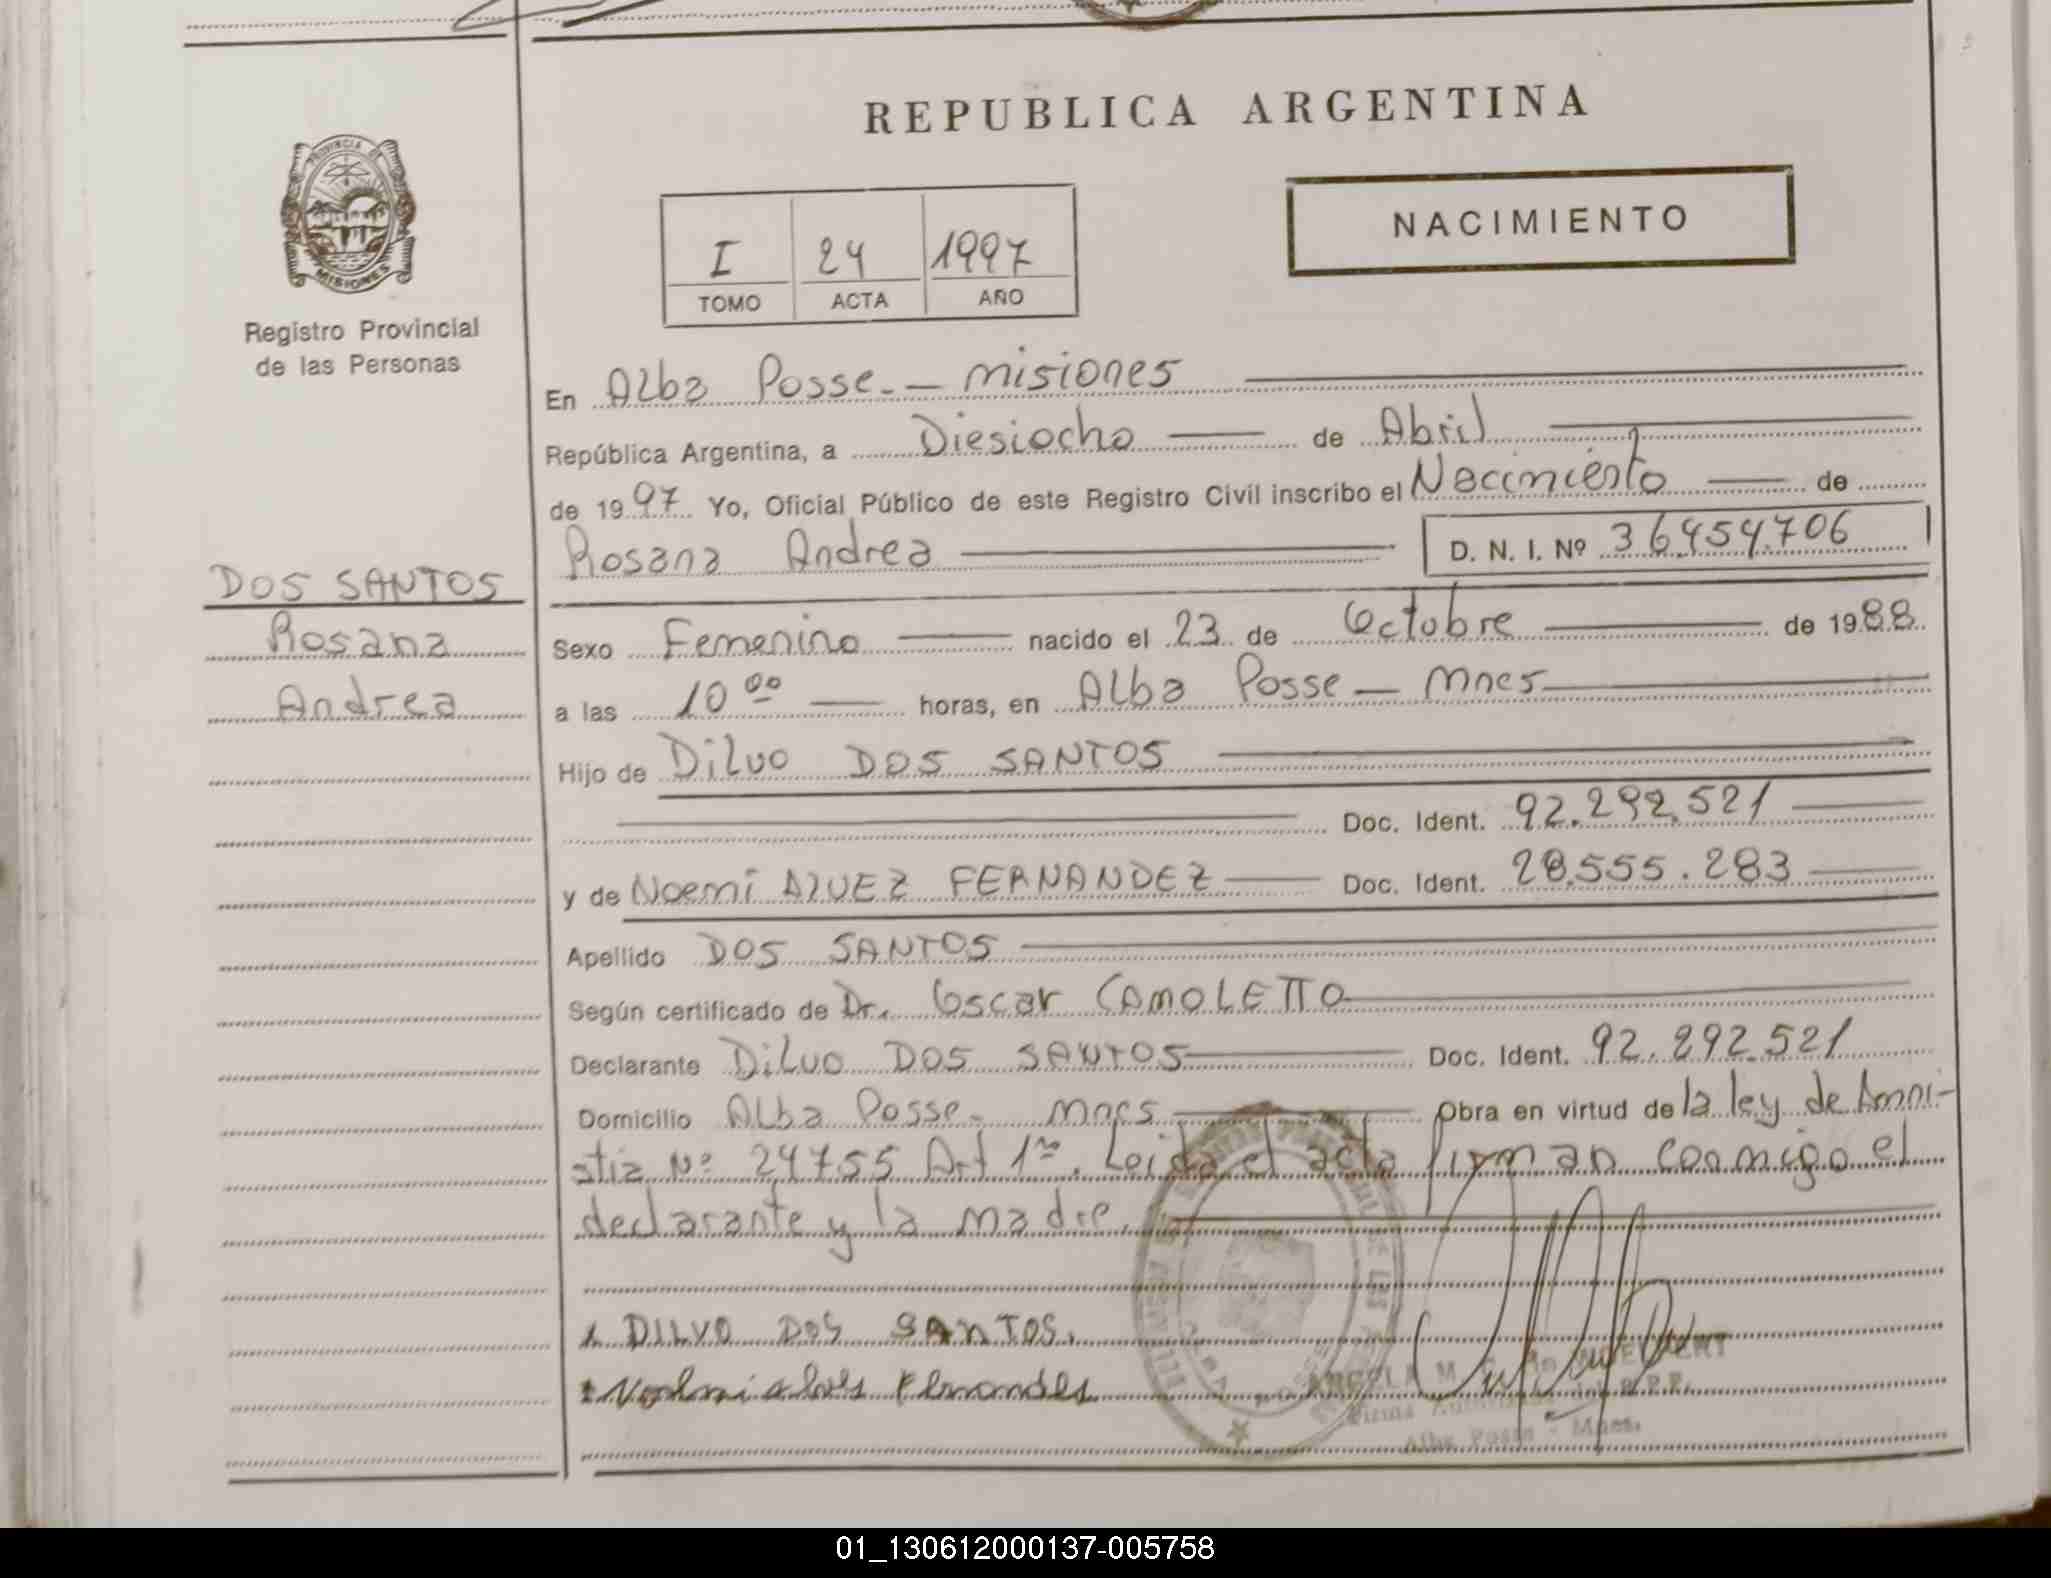 REPUBLICA ARGENTINA
NACIMIENTO
PROVINCIA DE
MISIONES
Registro Provincial
de las Personas
I 24 1997
TOMO ACTA AÑO
En Alba Posse - Misiones
República Argentina, a Diesiocho de Abril
de 1997 Yo, Oficial Público de este Registro Civil inscribo el Nacimiento de
Rosana Andrea D. N. I. Nº 36.454.706
DOS SANTOS
Rosana
Andrea
Sexo Femenino nacido el 23 de Octubre de 1988
a las 10 00 horas, en Alba Posse - Mnes
Hijo de Dilvo DOS SANTOS
Doc. Ident. 92.292.521
y de Noemi ALVEZ FERNANDEZ Doc. Ident. 28.555.283
Apellido DOS SANTOS
Según certificado de Dr. Oscar CAMOLETTO
Declarante Dilvo DOS SANTOS Doc. Ident. 92.292.521
Domicilio Alba Posse - Mnes Obra en virtud de la ley de Amni-
stia Nº 24755 Art 1ro. Leida el acta firman conmigo el
declarante y la madre.
DILVO DOS SANTOS.
Noelmi alves Fernandes
ANGELA M.
Firma Autorizada R.P.P.
Alba Posse - Mnes.
01_130612000137-005758